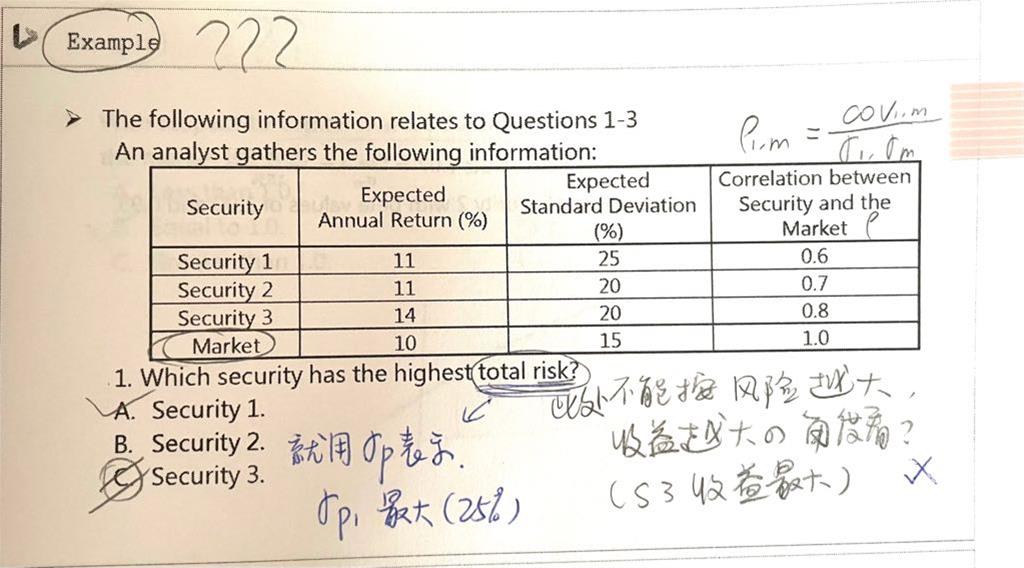 Example ???
➤ The following information relates to Questions 1-3
An analyst gathers the following information:
ρ₁,m = cov₁,m / σ₁, σm
Security | Expected Annual Return (%) | Expected Standard Deviation (%) | Correlation between Security and the Market ρ
Security 1 | 11 | 25 | 0.6
Security 2 | 11 | 20 | 0.7
Security 3 | 14 | 20 | 0.8
Market | 10 | 15 | 1.0
1. Which security has the highest total risk?
A. Security 1.
B. Security 2.
C. Security 3.
就用σp表示.
σp₁ 最大(25%)
此处不能按 风险越大,
收益越大の 角度看?
(S3收益最大) ×